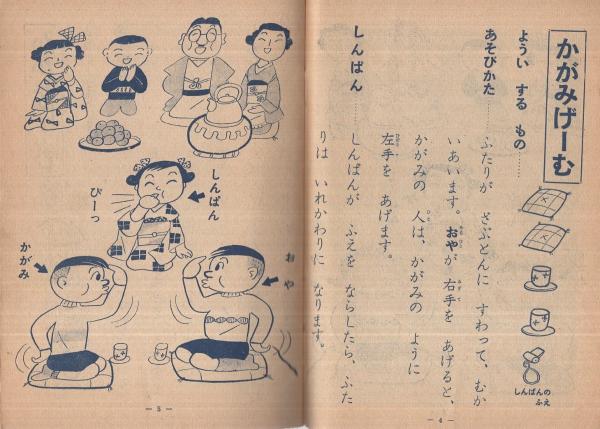 かがみげーむ
ようい する もの……
しんぱんの
ふえ
あそびかた……
ふたりが ざぶとんに すわって、むか
いあいます。おやが 右手を あげると、
かがみの 人は、かがみの ように
左手を あげます。
しんぱん……
しんぱんが ふえを ならしたら、ふた
りは いれかわりに なります。
— 4 —
しんぱん
ぴーっ
おや
かがみ
— 5 —